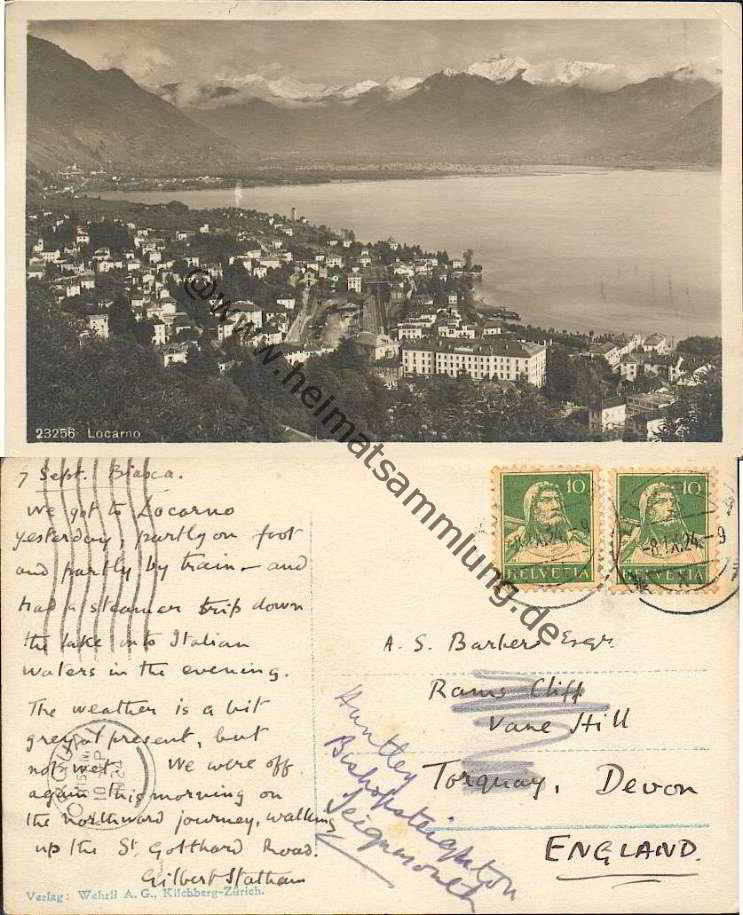 23256 Locarno
@www.heimatsammlung.de
7 Sept. Biasca.
We got to Locarno
yesterday, partly on foot
and partly by train – and
had a steamer trip down
the lake into Italian
waters in the evening.
The weather is a bit
grey at present, but
not wet. We were off
again this morning on
the northward journey, walking
up the St. Gotthard Road.
Gilbert Statham
Verlag: Wehrli A. G., Kilchberg-Zürich.
10 10
-8.IX.24-9 -8.IX.24-9
HELVETIA HELVETIA
A. S. Barber Esqr.
Rams Cliff
Vane Hill
Torquay, Devon
ENGLAND.
Huntley
Bishopsteignton
Teignmouth
TORQUAY
10 SP
24